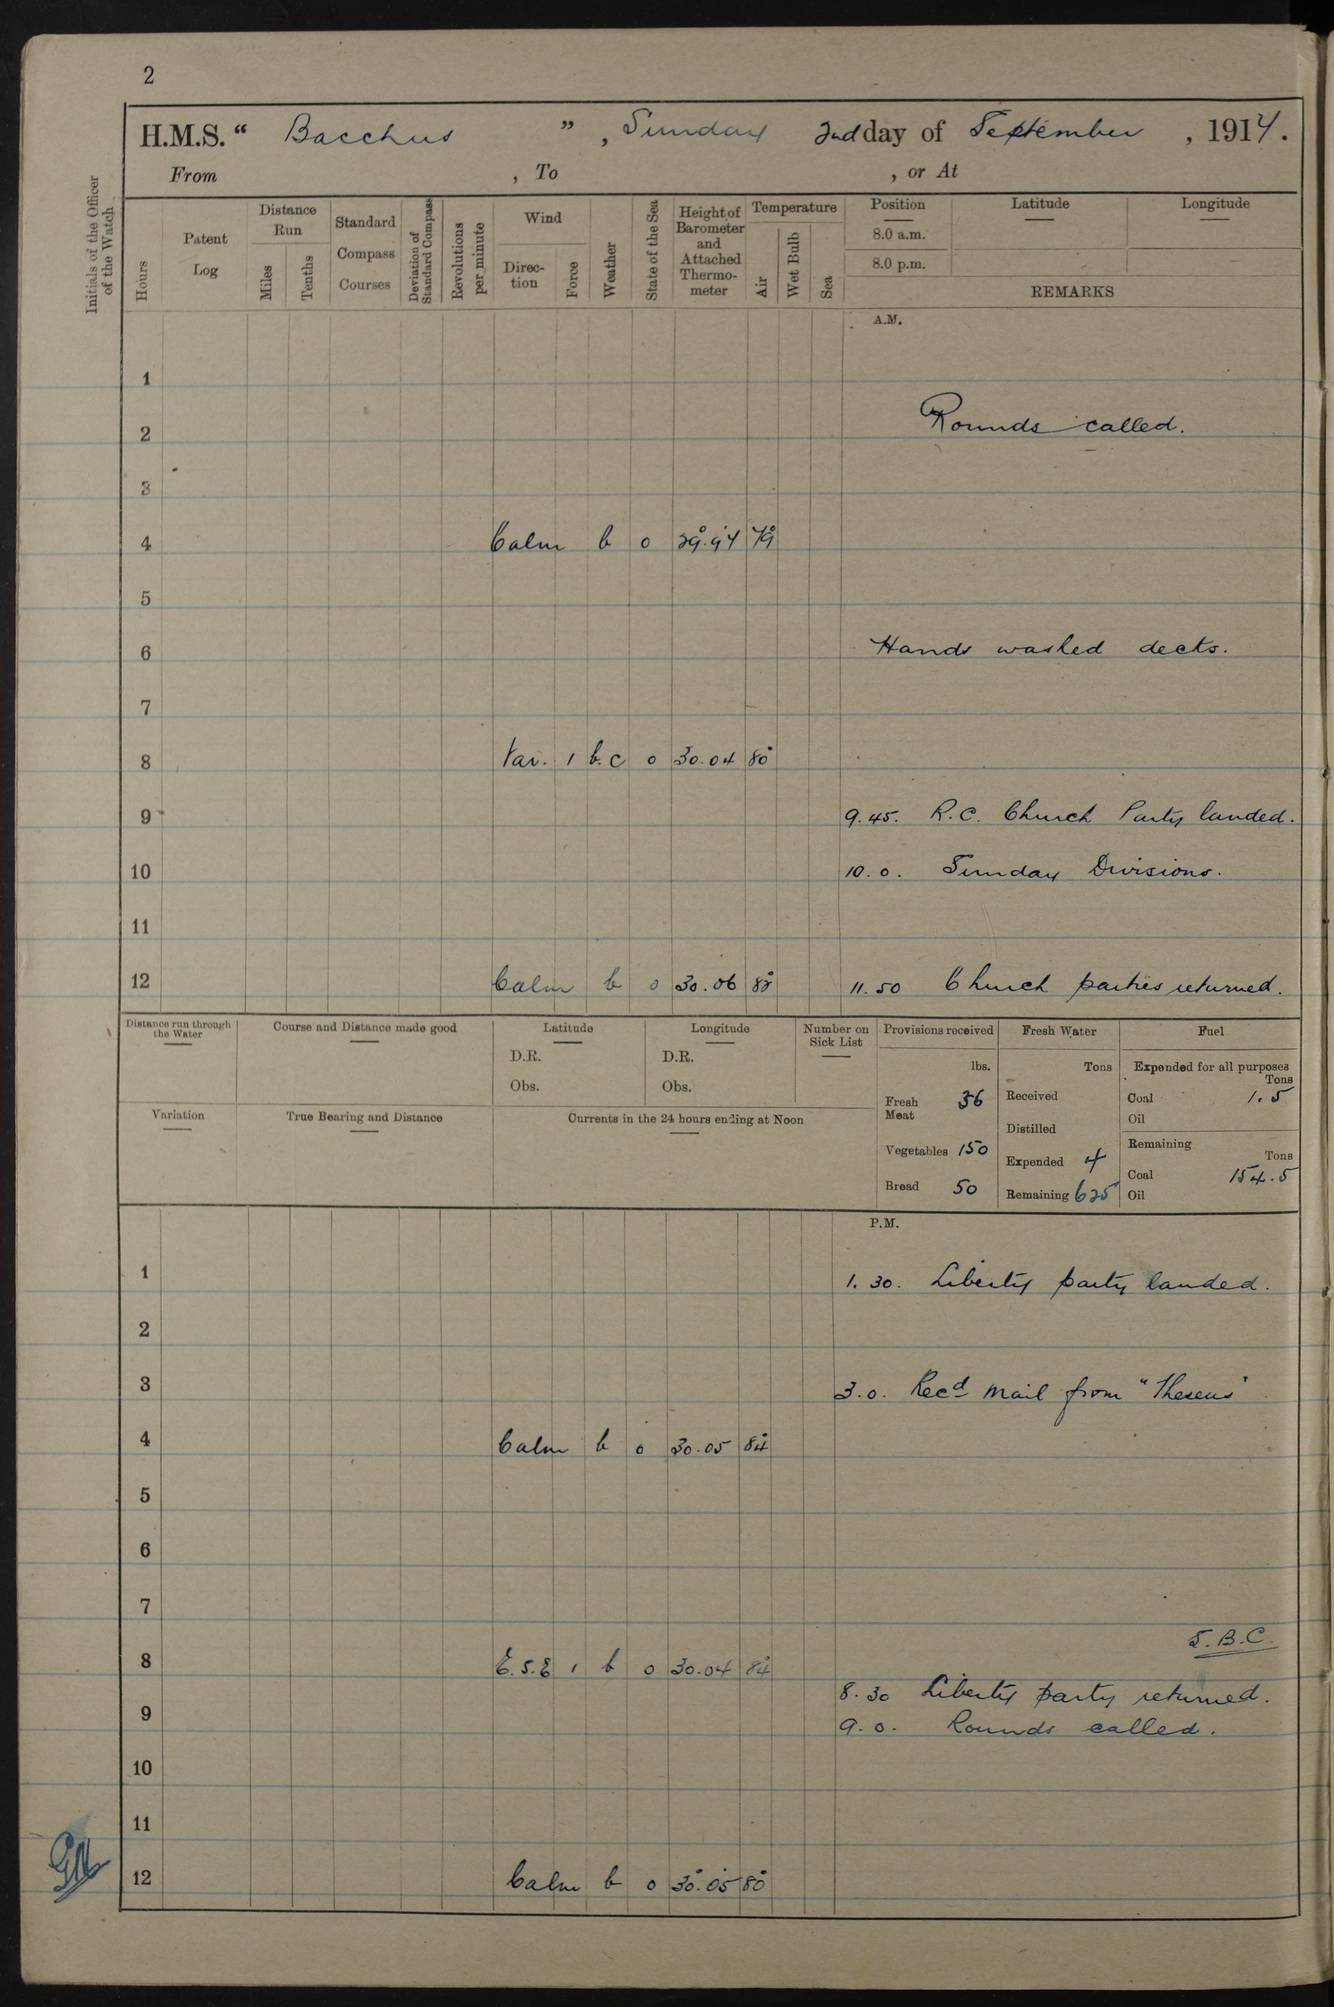 2
H.M.S. “ Bacchus ” , Sunday 2nd day of September , 1917.
From , To , or At
Initials of the Officer of the Watch
Hours
Patent Log
Distance Run
Miles
Tenths
Standard Compass Courses
Deviation of Standard Compass
Revolutions per minute
Wind
Direction
Force
Weather
State of the Sea
Height of Barometer and Attached Thermometer
Temperature
Air
Wet Bulb
Sea
Position
8.0 a.m.
8.0 p.m.
Latitude
Longitude
REMARKS
A.M.
1
2 Rounds called.
3
4 Calm b o 29.97 79
5
6 Hands washed decks.
7
8 Var. 1 b.c o 30.04 80
9 9.45. R.C. Church Party landed.
10 10.0. Sunday Divisions.
11
12 Calm b o 30.06 82 11.50 Church parties returned.
Distance run through the Water
Course and Distance made good
Latitude
D.R.
Obs.
Longitude
D.R.
Obs.
Number on Sick List
Provisions received
lbs.
Fresh Meat 36
Vegetables 150
Bread 50
Fresh Water
Tons
Received
Distilled
Expended 4
Remaining 625
Fuel
Expended for all purposes
Tons
Coal 1.5
Oil
Remaining
Tons
Coal 154.5
Oil
Variation
True Bearing and Distance
Currents in the 24 hours ending at Noon
P.M.
1 1.30. Liberty party landed.
2
3 3.0. Recd mail from "Theseus"
4 Calm b o 30.05 84
5
6
7
S.B.C.
8 E.S.E 1 b o 30.04 84
8.30 Liberty party returned.
9 9.0. Rounds called.
10
11
12 Calm b o 30.05 80